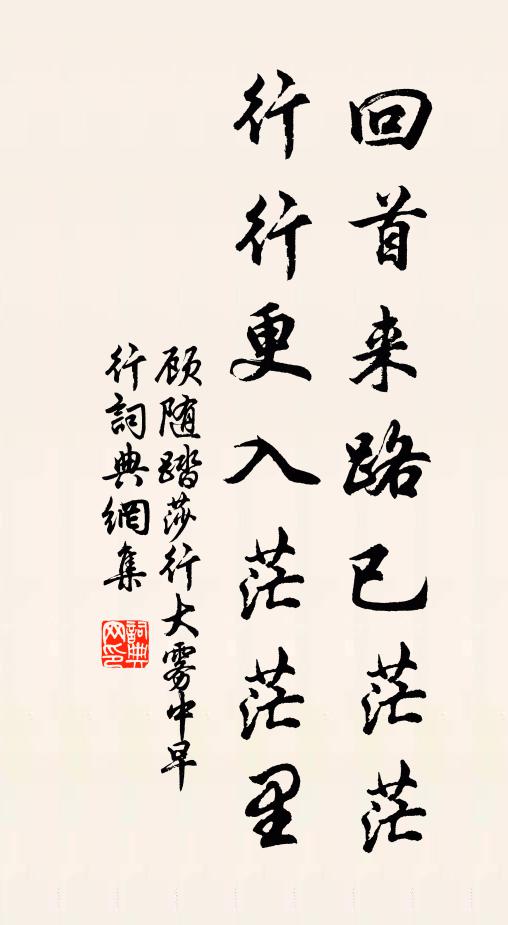 回首来路已茫茫
行行更入茫茫里
顾随踏莎行大雾中早
行詞典網集
詞典
网印